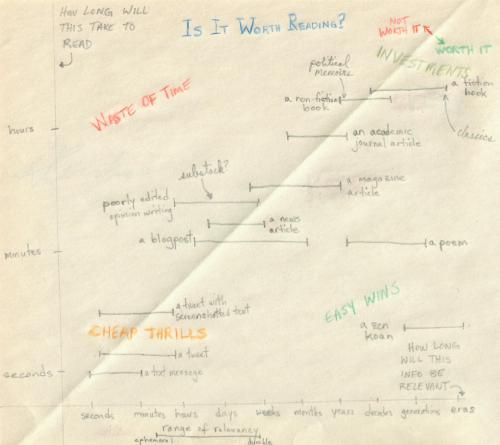 HOW LONG WILL
THIS TAKE TO
READ
IS IT WORTH READING?
NOT
WORTH IT
WORTH IT
INVESTMENTS
WASTE OF TIME
political
memoirs
a fiction
book
a non-fiction
book
classics
hours
an academic
journal article
substack?
a magazine
article
poorly edited
opinion writing
a news
article
a blogpost
a poem
minutes
a tweet with
screenshotted text
EASY WINS
CHEAP THRILLS
a zen
koan
a tweet
HOW LONG
WILL THIS
INFO BE
RELEVANT
seconds
a text message
seconds
minutes
hours
days
weeks
months
years
decades
generations
eras
range of relevancy
ephemeral
durable